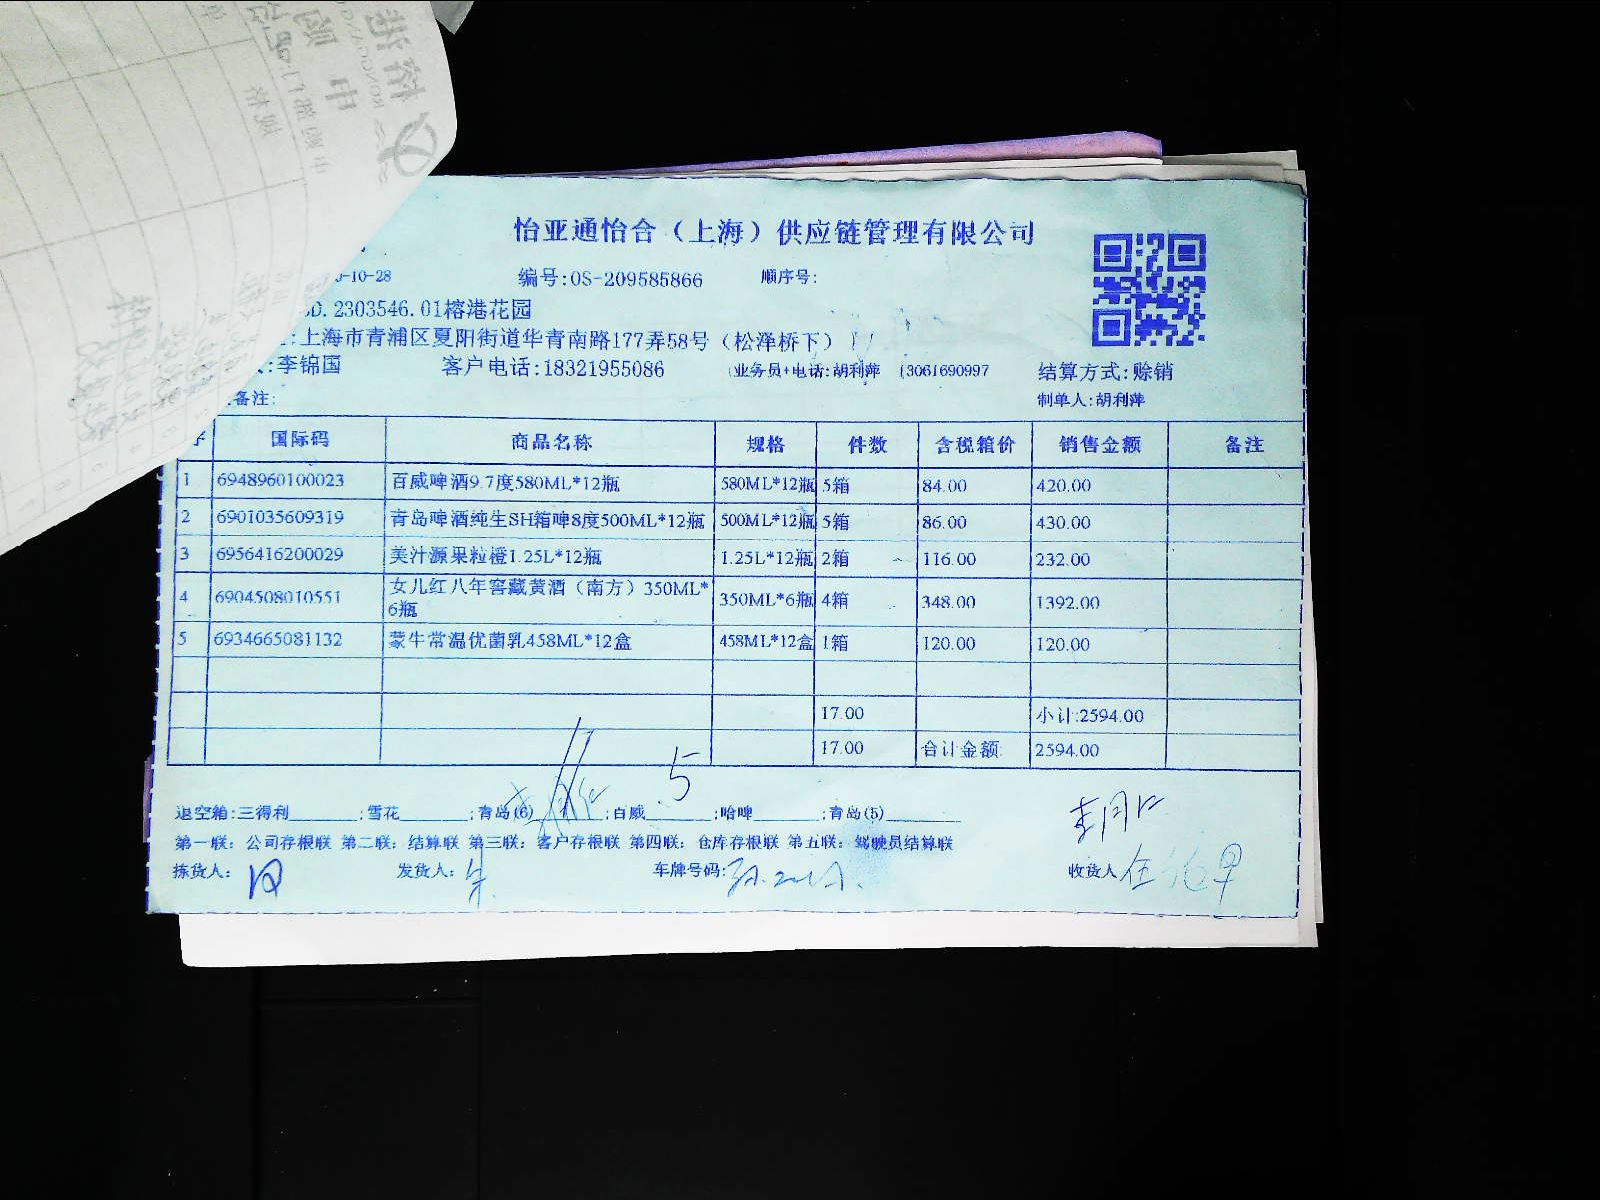 怡亚通怡合（上海）供应链管理有限公司
-10-28 编号:OS-209585866 顺序号:
D.2303546.01榕港花园
:上海市青浦区夏阳街道华青南路177弄58号（松泽桥下）
:李锦国 客户电话:18321955086 (业务员+电话:胡利萍 13061690997 结算方式:赊销
备注: 制单人:胡利萍
国际码 商品名称 规格 件数 含税箱价 销售金额 备注
1 6948960100023 百威啤酒9.7度580ML*12瓶 580ML*12瓶 5箱 84.00 420.00
2 6901035609319 青岛啤酒纯生SH箱啤8度500ML*12瓶 500ML*12瓶 5箱 86.00 430.00
3 6956416200029 美汁源果粒橙1.25L*12瓶 1.25L*12瓶 2箱 116.00 232.00
4 6904508010551 女儿红八年窖藏黄酒（南方）350ML*
6瓶 350ML*6瓶 4箱 348.00 1392.00
5 6934665081132 蒙牛常温优菌乳458ML*12盒 458ML*12盒 1箱 120.00 120.00
17.00 小计:2594.00
17.00 合计金额: 2594.00
5
退空箱:三得利________;雪花________;青岛(6)________;百威________;哈啤________;青岛(5)________
第一联：公司存根联 第二联：结算联 第三联：客户存根联 第四联：仓库存根联 第五联：驾驶员结算联
拣货人： 发货人： 朱 车牌号码: 收货人